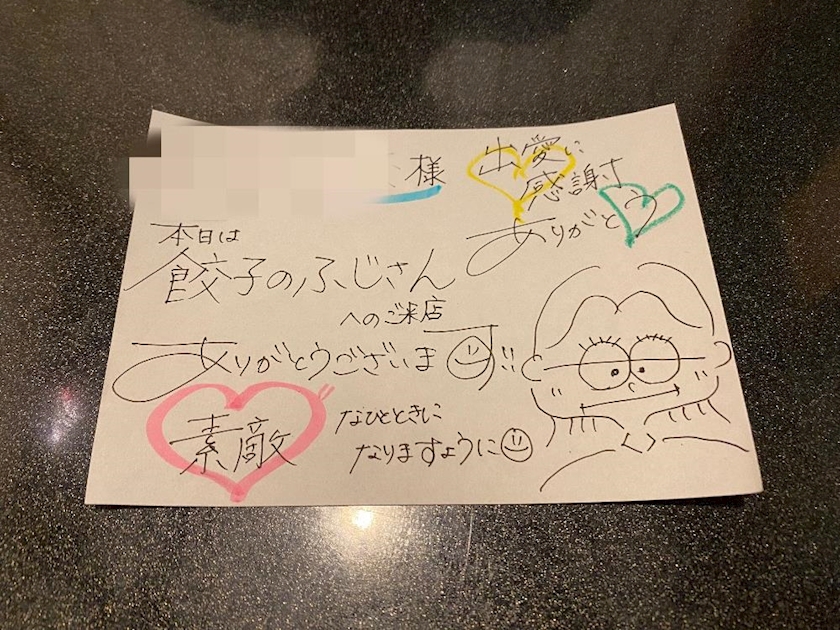 様
本日は
餃子のふじさん
へのご来店
ありがとうございます!!
素敵
なひとときに
なりますように
出愛に
感謝す
ありがとう